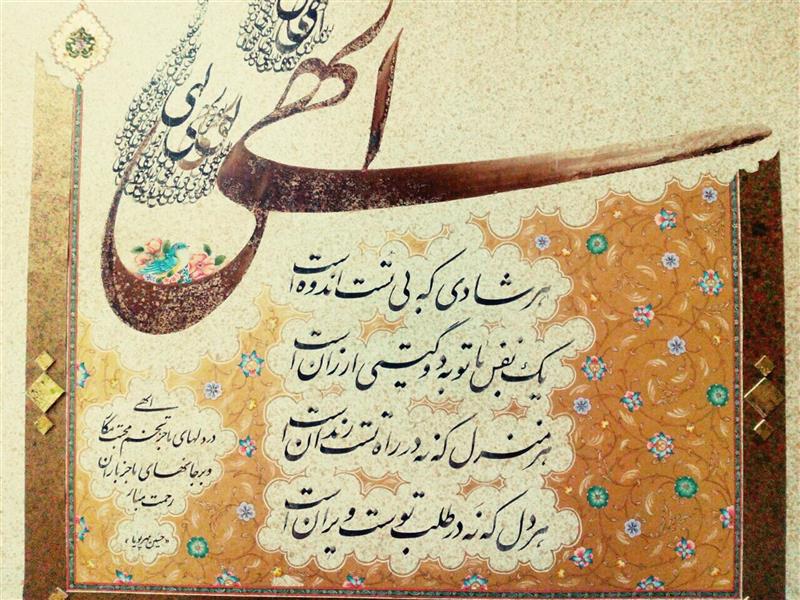 الهی
هر شادی که بی تست اندوه است
یک نفس با تو به دو گیتی ارزان است
هر منزل که نه در راه تست زندان است
هر دل که نه در طلب توست ویران است
الهی
در دلهای ما جز تخم محبت مکار
و بر جانهای ما جز باران
رحمت مبار
«حسین مهرپویا»